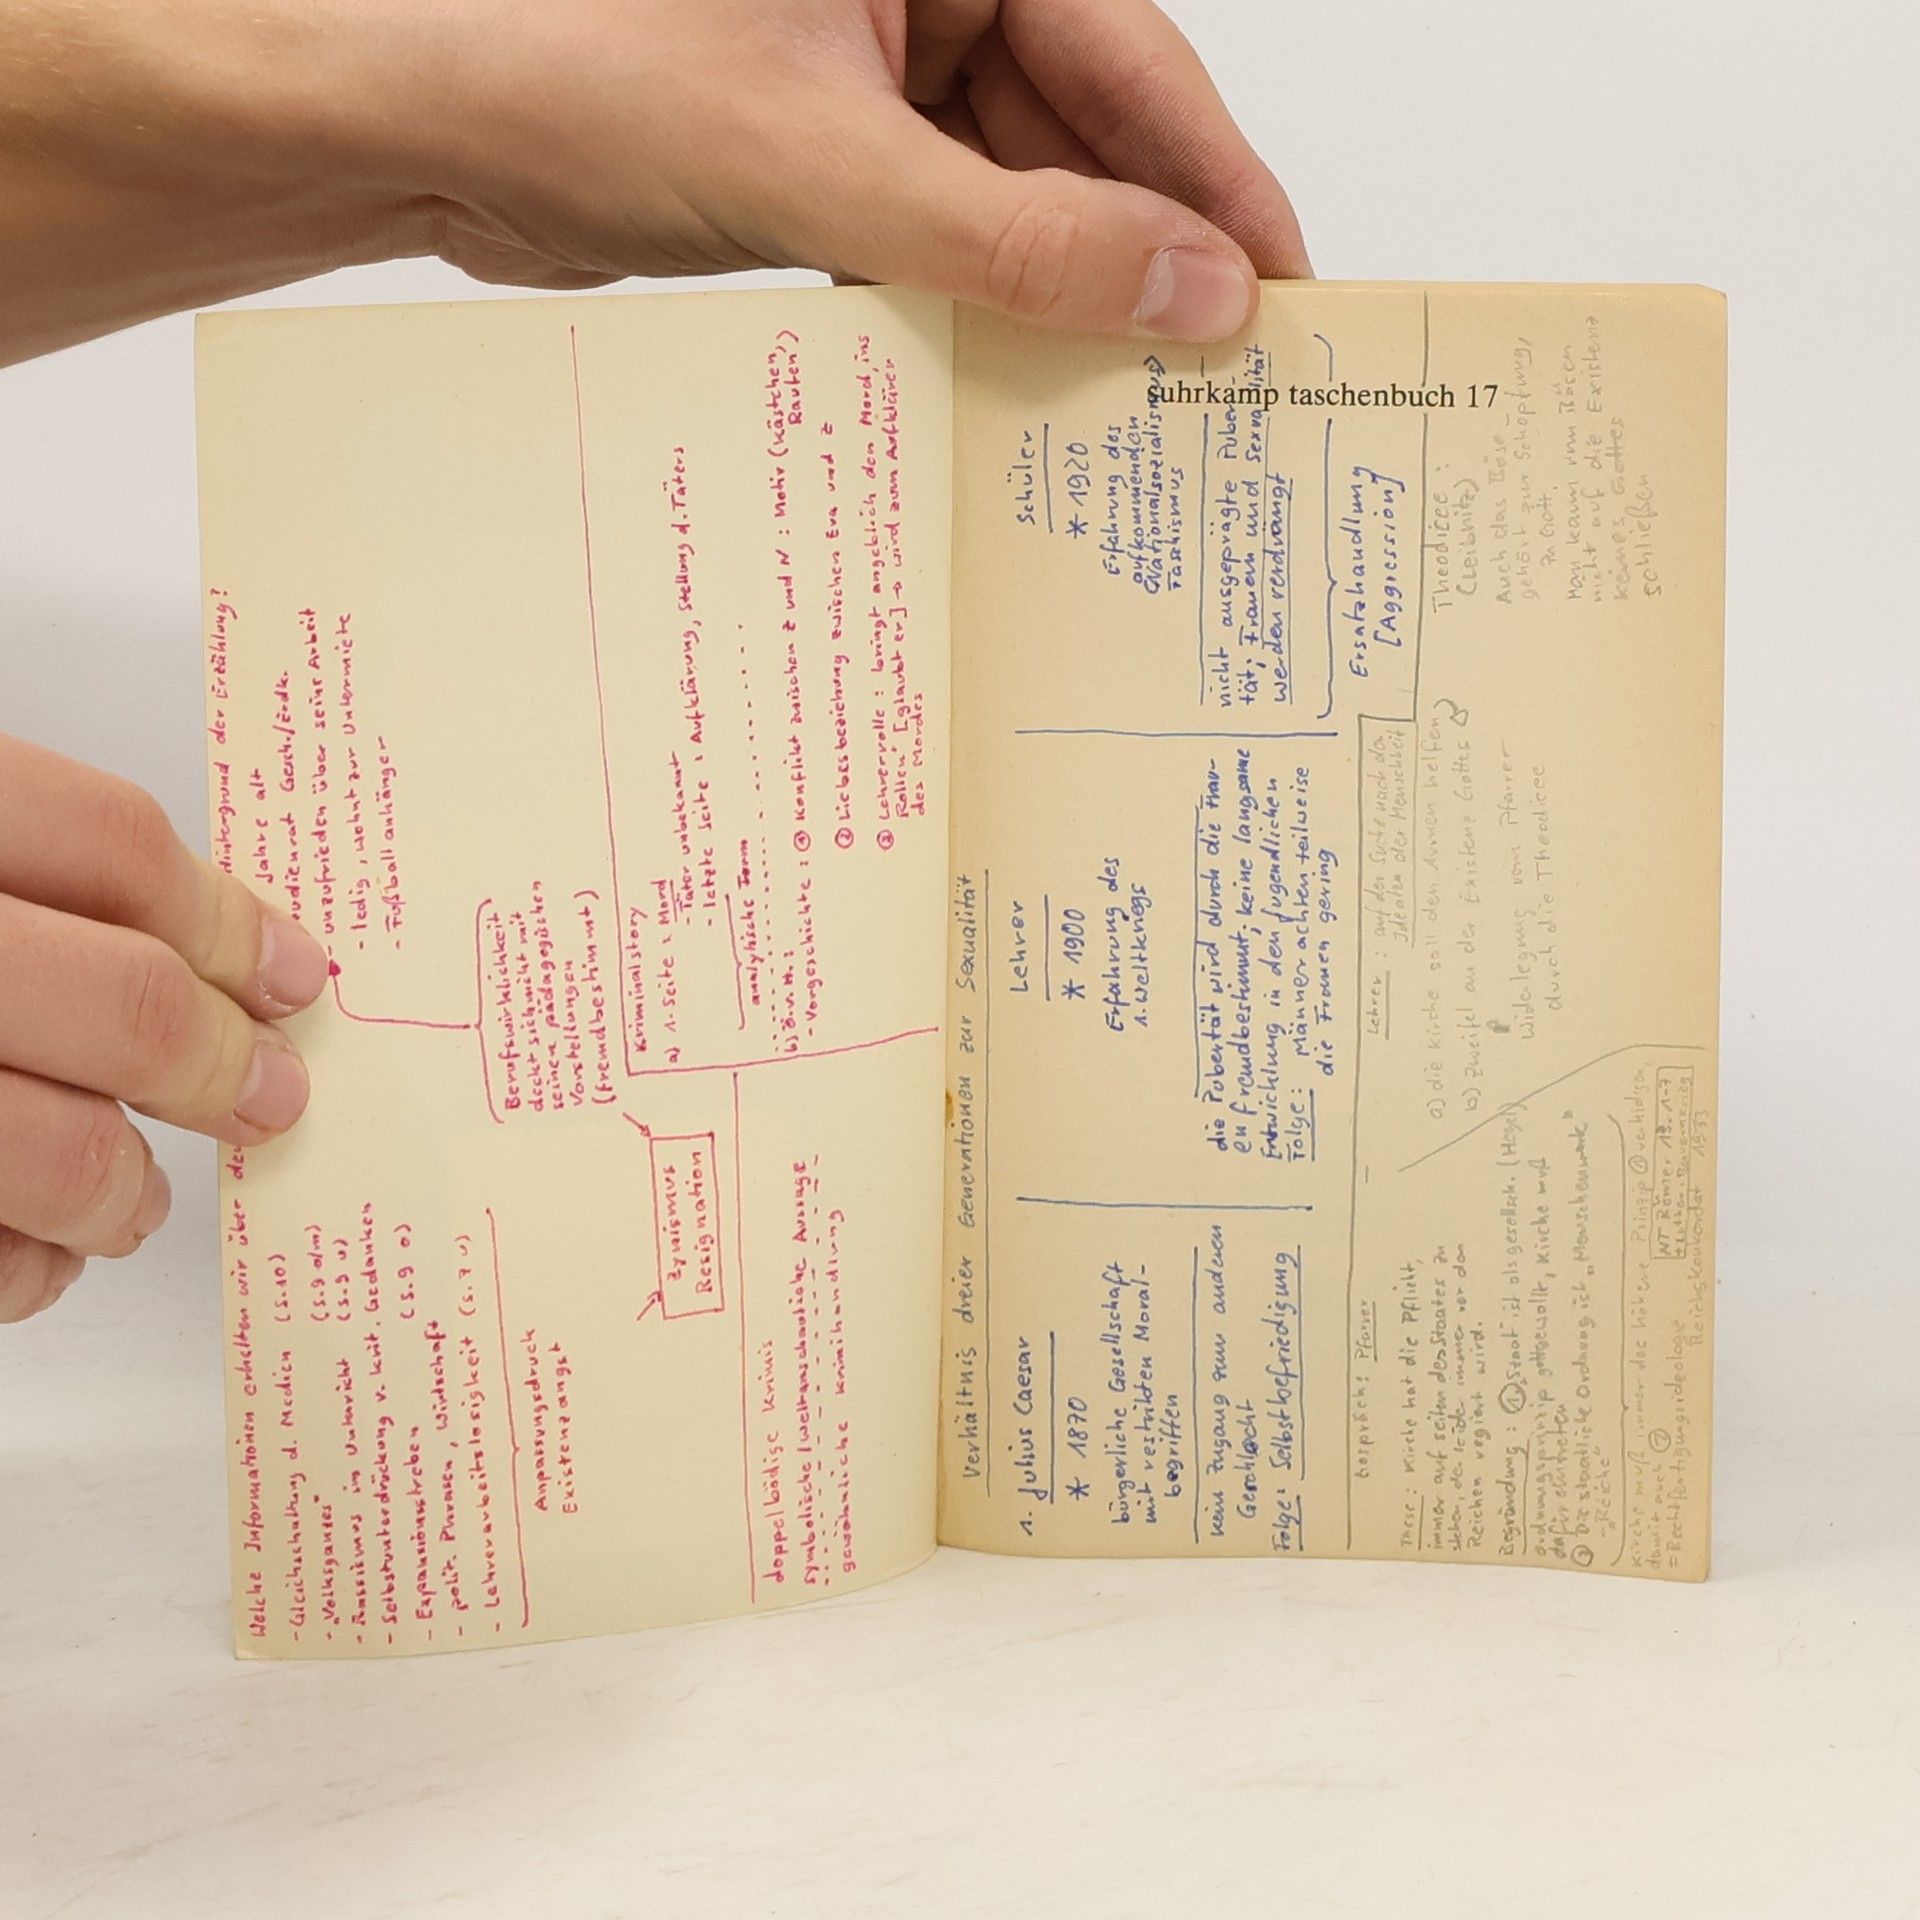 Welche Informationen erhalten wir über den Hintergrund der Erzählung?
- Gleichschaltung d. Medien (S.10)
- "Volksganzes" (S.9 o/m)
- Rassismus im Unterricht (S.9 u)
- Selbstunterdrückung v. krit. Gedanken
- Expansionsstreben (S.9 o)
- polit. Phrasen, Wirtschaft
- Lehrerarbeitslosigkeit (S.7 u)
Anpassungsdruck
Existenzangst
Jahre alt
Gesch./Erdk.
- unzufrieden über seine Arbeit
- ledig, wohnt zur Untermiete
- Fußballanhänger
Berufswirklichkeit
deckt sich nicht mit
seinen pädagogischen
Vorstellungen
(fremdbestimmt)
Zynismus
Resignation
Kriminalstory
a) 1. Seite: Mord
- Täter unbekannt
- letzte Seite: Aufklärung, Stellung d. Täters
analytische Form
b) ö.v.H.:
- Vorgeschichte: ① Konflikt zwischen Z und N: Motiv (Kästchen,
Rauten)
② Liebesbeziehung zwischen Eva und Z
③ Lehrerrolle: bringt angeblich den Mord "ins
Rollen" [glaubt er] → wird zum Aufklärer
des Mordes
doppelbödige Krimis
symbolische/weltanschauliche Aussage
gewöhnliche Krimihandlung
suhrkamp taschenbuch 17
Verhältnis dreier Generationen zur Sexualität
1. Julius Caesar
* 1870
bürgerliche Gesellschaft
mit restrikten Moral-
begriffen
kein Zugang zum anderen
Geschlecht
Folge: Selbstbefriedigung
Lehrer
* 1900
Erfahrung des
1. Weltkriegs
die Pubertät wird durch die Frau-
en fremdbestimmt; keine langsame
Entwicklung in den Jugendlichen
Folge: Männer achten teilweise
die Frauen gering
Schüler
* 1920
Erfahrung des
aufkommenden
(Nationalsozialismus)
Faschismus
nicht ausgeprägte Puber-
tät; Frauen und Sexualität
werden verdrängt
Ersatzhandlung
[Aggression]
Gespräch: Pfarrer
These: Kirche hat die Pflicht,
immer auf seiten des Staates zu
stehen, der leider immer von den
Reichen regiert wird.
Begründung: ① Staat ist als gesellsch. (Hegel)
Ordnungsprinzip gottgewollt, Kirche muß
dafür eintreten
② Die staatliche Ordnung ist "Menschenwerk"
- "Reiche"
Kirche muß immer das höhere Prinzip ① verteidigen,
damit auch ②
= Rechtfertigungsideologie
NT Römer 13, 1-7
Reichskonkordat 1933
Lehrer: auf der Suche nach den
Idealen der Menschheit
a) die Kirche soll den Armen helfen
b) Zweifel an der Existenz Gottes
Widerlegung vom Pfarrer
durch die Theodicee
Theodicee:
(Leibnitz)
Auch das Böse
gehört zur Schöpfung,
zu Gott.
Man kann vom Bösen
nicht auf die Existenz
keines Gottes
schließen